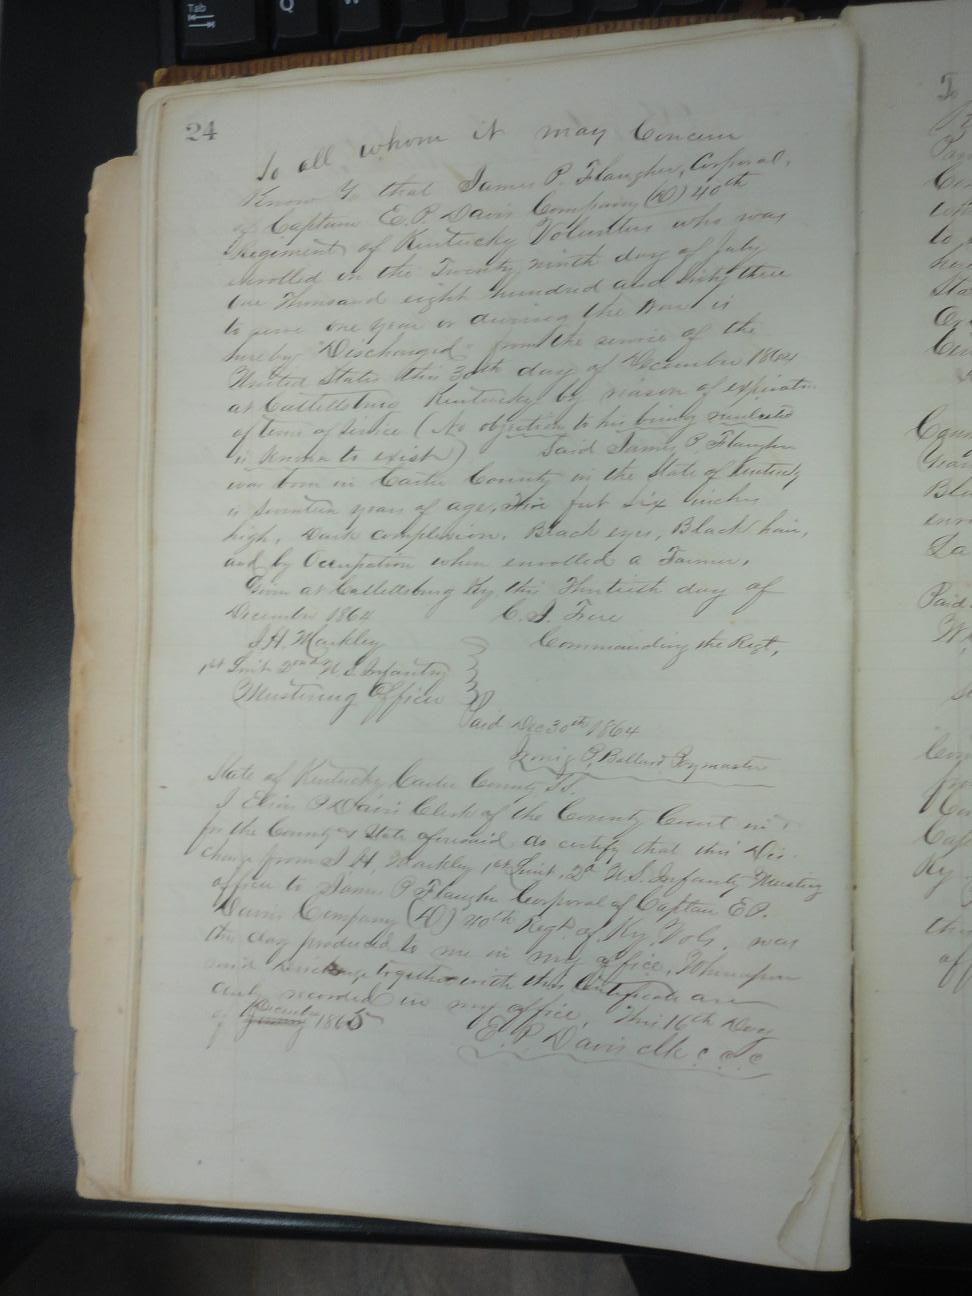 Tab
Q
24
To all whom it may Concern
Know Ye that James P. Flaugher, Corporal,
of Captain E. P. Davis Company (D) 40th
Regiment of Kentucky Volunteers who was
enrolled on the Twenty ninth day of July
One Thousand eight hundred and Sixty three
to serve one year or during the war is
hereby "Discharged" from the service of the
United States this 30th day of December 1864
at Catlettsburg Kentucky by reason of expiration
of term of Service (No objection to his being reenlisted
is known to exist) Said James P. Flaugher
was born in Carter County in the State of Kentucky
is Seventeen years of age, Five feet Six inches
high, Dark complexion, Black eyes, Black hair,
and by Occupation when enrolled a Farmer.
Given at Catlettsburg Ky this Thirtieth day of
December 1864 C. J. True
J. H. Markley Commanding the Regt,
1st Lieut 2nd U.S. Infantry
Mustering Officer
Paid Dec 30th 1864
Bullard Paymaster
State of Kentucky Carter County Ss.
I Elias P Davis Clerk of the County Court in
for the County & State aforesaid do certify that this Dis-
charge from J. H. Markley 1st Lieut. 2d U.S. Infantry Mustering
officer to James P Flaugher Corporal of Captain E. P.
Davis Company (D) 40th Regt. of Ky. Vols. was
this day produced to me in my office, Whereupon
said discharge together with this Certificate are
duly recorded in my office, This 16th day
of December 1865
E. P. Davis clk C. C. C